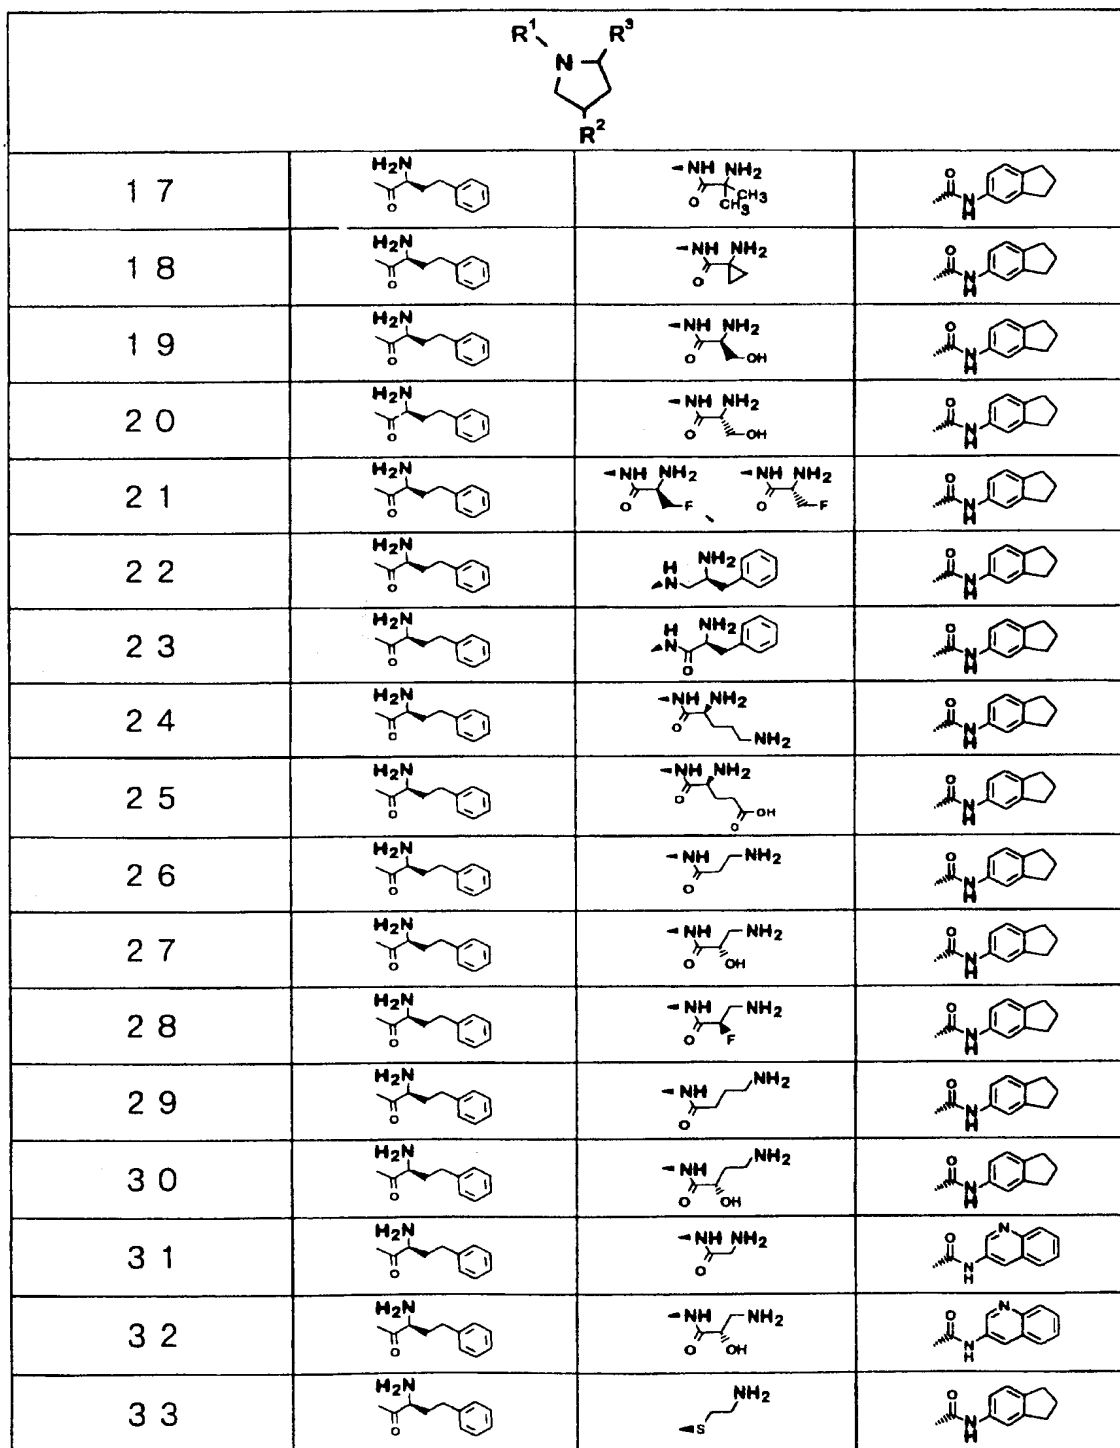 R¹ R³
N
R²
1 7
H₂N
O
NH NH₂
O
CH₃
CH₃
O
N
H
1 8
H₂N
O
NH NH₂
O
O
N
H
1 9
H₂N
O
NH NH₂
O
OH
O
N
H
2 0
H₂N
O
NH NH₂
O
OH
O
N
H
2 1
H₂N
O
NH NH₂
O
F
NH NH₂
O
F
O
N
H
2 2
H₂N
O
H
N
NH₂
O
N
H
2 3
H₂N
O
H
N
NH₂
O
O
N
H
2 4
H₂N
O
NH NH₂
O
NH₂
O
N
H
2 5
H₂N
O
NH NH₂
O
OH
O
O
N
H
2 6
H₂N
O
NH
NH₂
O
O
N
H
2 7
H₂N
O
NH
NH₂
O
OH
O
N
H
2 8
H₂N
O
NH
NH₂
O
F
O
N
H
2 9
H₂N
O
NH
NH₂
O
O
N
H
3 0
H₂N
O
NH
NH₂
O
OH
O
N
H
3 1
H₂N
O
NH NH₂
O
O
N
H
N
3 2
H₂N
O
NH
NH₂
O
OH
O
N
H
N
3 3
H₂N
O
NH₂
S
O
N
H